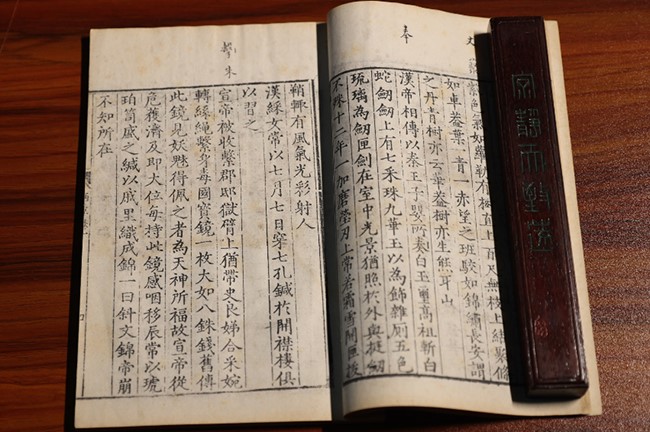 氣如蘿勒有樹直上百尺無枝上結藂條
如車葢葉一青一赤望之班駮如錦繡長安謂
之丹青樹亦云華葢樹亦生熊耳山
漢帝相傳以秦王子嬰所奉白玉璽高祖斬白
蛇劒劒上有七采珠九華玉以為飾雜厠五色
琉璃為劒匣劒在室中光景猶照於外與挺劒
不殊十二年一加磨瑩刃上常若霜雪開匣拔
鞘輙有風氣光彩射人
漢綵女常以七月七日穿七孔鍼於開襟樓俱
以習之
宣帝被收繫郡邸獄臂上猶帶史良娣合采婉
轉絲繩繫身毒國寶鏡一枚大如八銖錢舊傳
此鏡見妖魅得佩之者為天神所福故宣帝從
危獲濟及即大位每持此鏡感咽移辰常以琥
珀笥盛之緘以戚里織成錦一曰斜文錦帝崩
不知所在
奉
寧靜而致遠